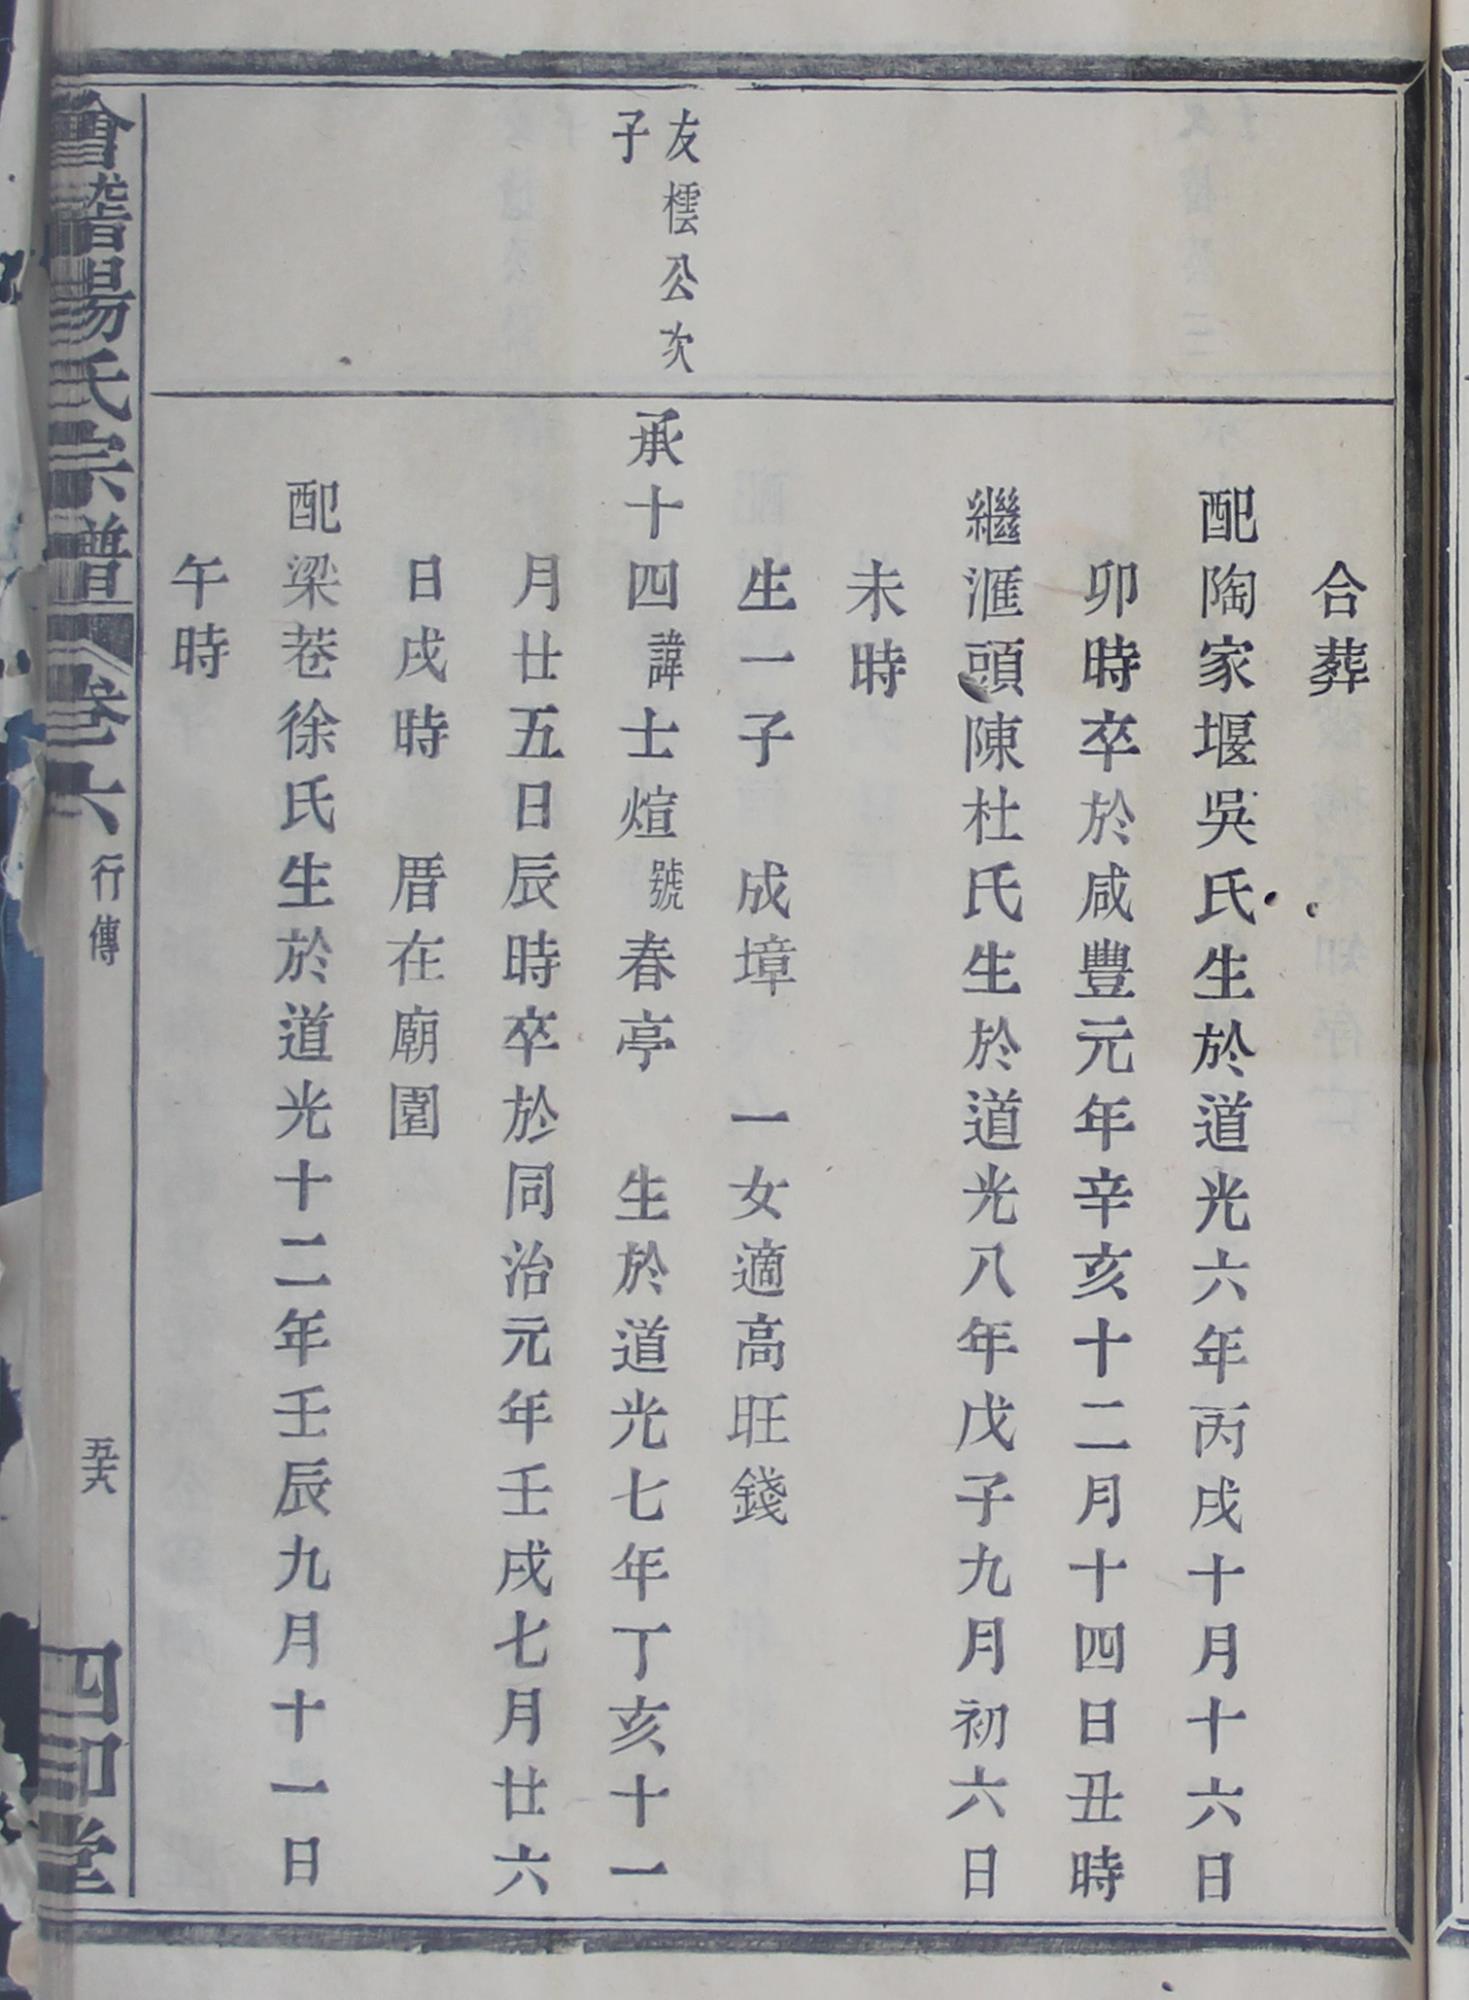 合葬
配陶家堰吳氏生於道光六年丙戌十月十六日
卯時卒於咸豐元年辛亥十二月十四日丑時
繼滙頭陳杜氏生於道光八年戊子九月初六日
未時
生一子　成墇　一女適高旺錢
友橒公次
子
承十四諱士煊號春亭　生於道光七年丁亥十一
月廿五日辰時卒於同治元年壬戌七月廿六
日戌時　厝在廟園
配梁巷徐氏生於道光十二年壬辰九月十一日
午時
會稽楊氏宗譜　卷六　行傳　五六　四知堂